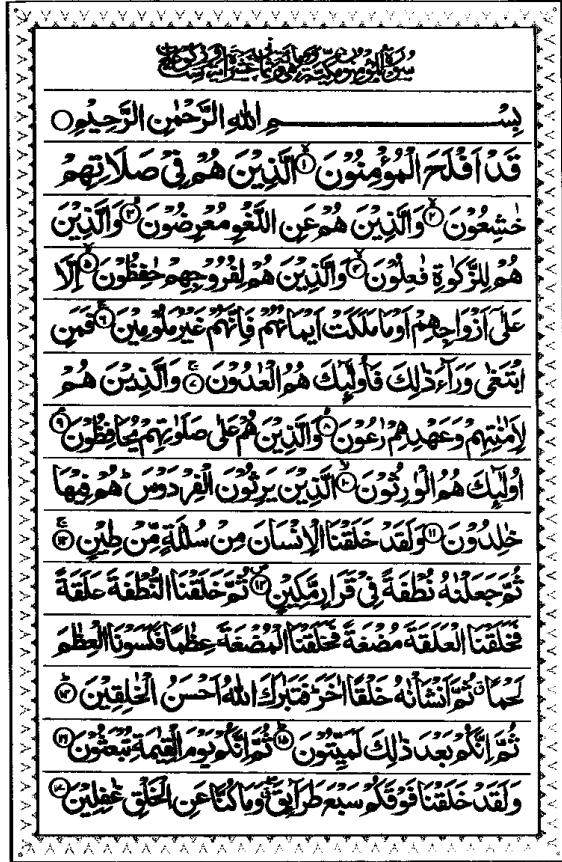 سُوْرَةُ الْمُؤْمِنُوْنَ مَكِّيَّةٌ
بِسْمِ اللهِ الرَّحْمٰنِ الرَّحِيْمِ ○
قَدْ اَفْلَحَ الْمُؤْمِنُوْنَ ۙ﴿۱﴾ الَّذِيْنَ هُمْ فِيْ صَلَاتِهِمْ
خٰشِعُوْنَ ۙ﴿۲﴾ وَالَّذِيْنَ هُمْ عَنِ اللَّغْوِ مُعْرِضُوْنَ ۙ﴿۳﴾ وَالَّذِيْنَ
هُمْ لِلزَّكٰوةِ فٰعِلُوْنَ ۙ﴿۴﴾ وَالَّذِيْنَ هُمْ لِفُرُوْجِهِمْ حٰفِظُوْنَ ۙ﴿۵﴾ اِلَّا
عَلٰٓى اَزْوَاجِهِمْ اَوْ مَا مَلَكَتْ اَيْمَانُهُمْ فَاِنَّهُمْ غَيْرُ مَلُوْمِيْنَ ۚ﴿۶﴾ فَمَنِ
ابْتَغٰى وَرَآءَ ذٰلِكَ فَاُولٰٓئِكَ هُمُ الْعٰدُوْنَ ۚ﴿۷﴾ وَالَّذِيْنَ هُمْ
لِاَمٰنٰتِهِمْ وَعَهْدِهِمْ رٰعُوْنَ ۙ﴿۸﴾ وَالَّذِيْنَ هُمْ عَلٰى صَلَوٰتِهِمْ يُحَافِظُوْنَ ۘ﴿۹﴾
اُولٰٓئِكَ هُمُ الْوٰرِثُوْنَ ۙ﴿۱۰﴾ الَّذِيْنَ يَرِثُوْنَ الْفِرْدَوْسَ ؕ هُمْ فِيْهَا
خٰلِدُوْنَ ﴿۱۱﴾ وَلَقَدْ خَلَقْنَا الْاِنْسَانَ مِنْ سُلٰلَةٍ مِّنْ طِيْنٍ ۚ﴿۱۲﴾
ثُمَّ جَعَلْنٰهُ نُطْفَةً فِيْ قَرَارٍ مَّكِيْنٍ ۪﴿۱۳﴾ ثُمَّ خَلَقْنَا النُّطْفَةَ عَلَقَةً
فَخَلَقْنَا الْعَلَقَةَ مُضْغَةً فَخَلَقْنَا الْمُضْغَةَ عِظٰمًا فَكَسَوْنَا الْعِظٰمَ
لَحْمًا ۗ ثُمَّ اَنْشَاْنٰهُ خَلْقًا اٰخَرَ ؕ فَتَبٰرَكَ اللهُ اَحْسَنُ الْخٰلِقِيْنَ ؕ﴿۱۴﴾
ثُمَّ اِنَّكُمْ بَعْدَ ذٰلِكَ لَمَيِّتُوْنَ ؕ﴿۱۵﴾ ثُمَّ اِنَّكُمْ يَوْمَ الْقِيٰمَةِ تُبْعَثُوْنَ ﴿۱۶﴾
وَلَقَدْ خَلَقْنَا فَوْقَكُمْ سَبْعَ طَرَآئِقَ ۖ وَمَا كُنَّا عَنِ الْخَلْقِ غٰفِلِيْنَ ﴿۱۷﴾